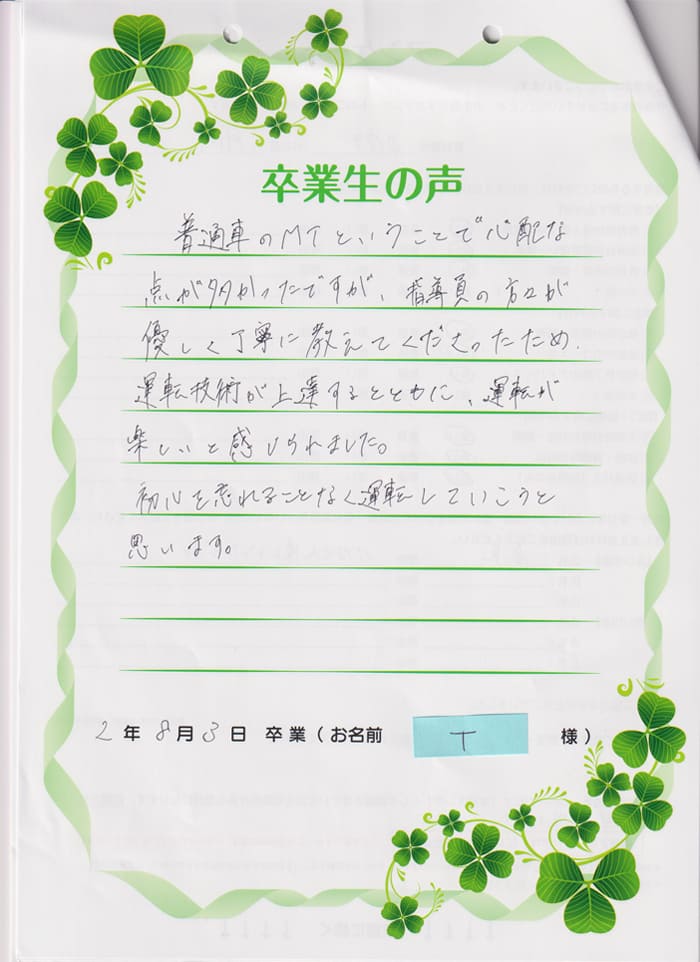 卒業生の声
普通車のMTということで心配な
点が多かったですが、指導員の方々が
優しく丁寧に教えてくださったため、
運転技術が上達するとともに、運転が
楽しいと感じられました。
初心を忘れることなく運転していこうと
思います。
2年8月3日 卒業(お名前 T 様)